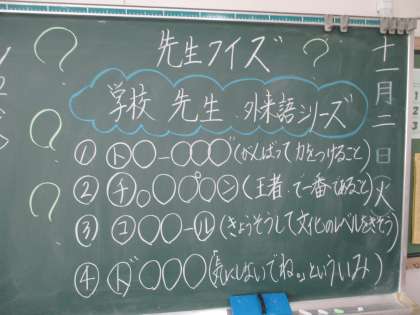 先生クイズ
学校 先生 外来語シリーズ
① ト○ー○○○゛(がんばって力をつけること)
② チ。○○゜○ン(王者、で一番であること)
③ コ○○ール(きょうそうして文化のレベルをきそう)
④ ド○○○(「気にしないでね。」といういみ)
十一月二日火